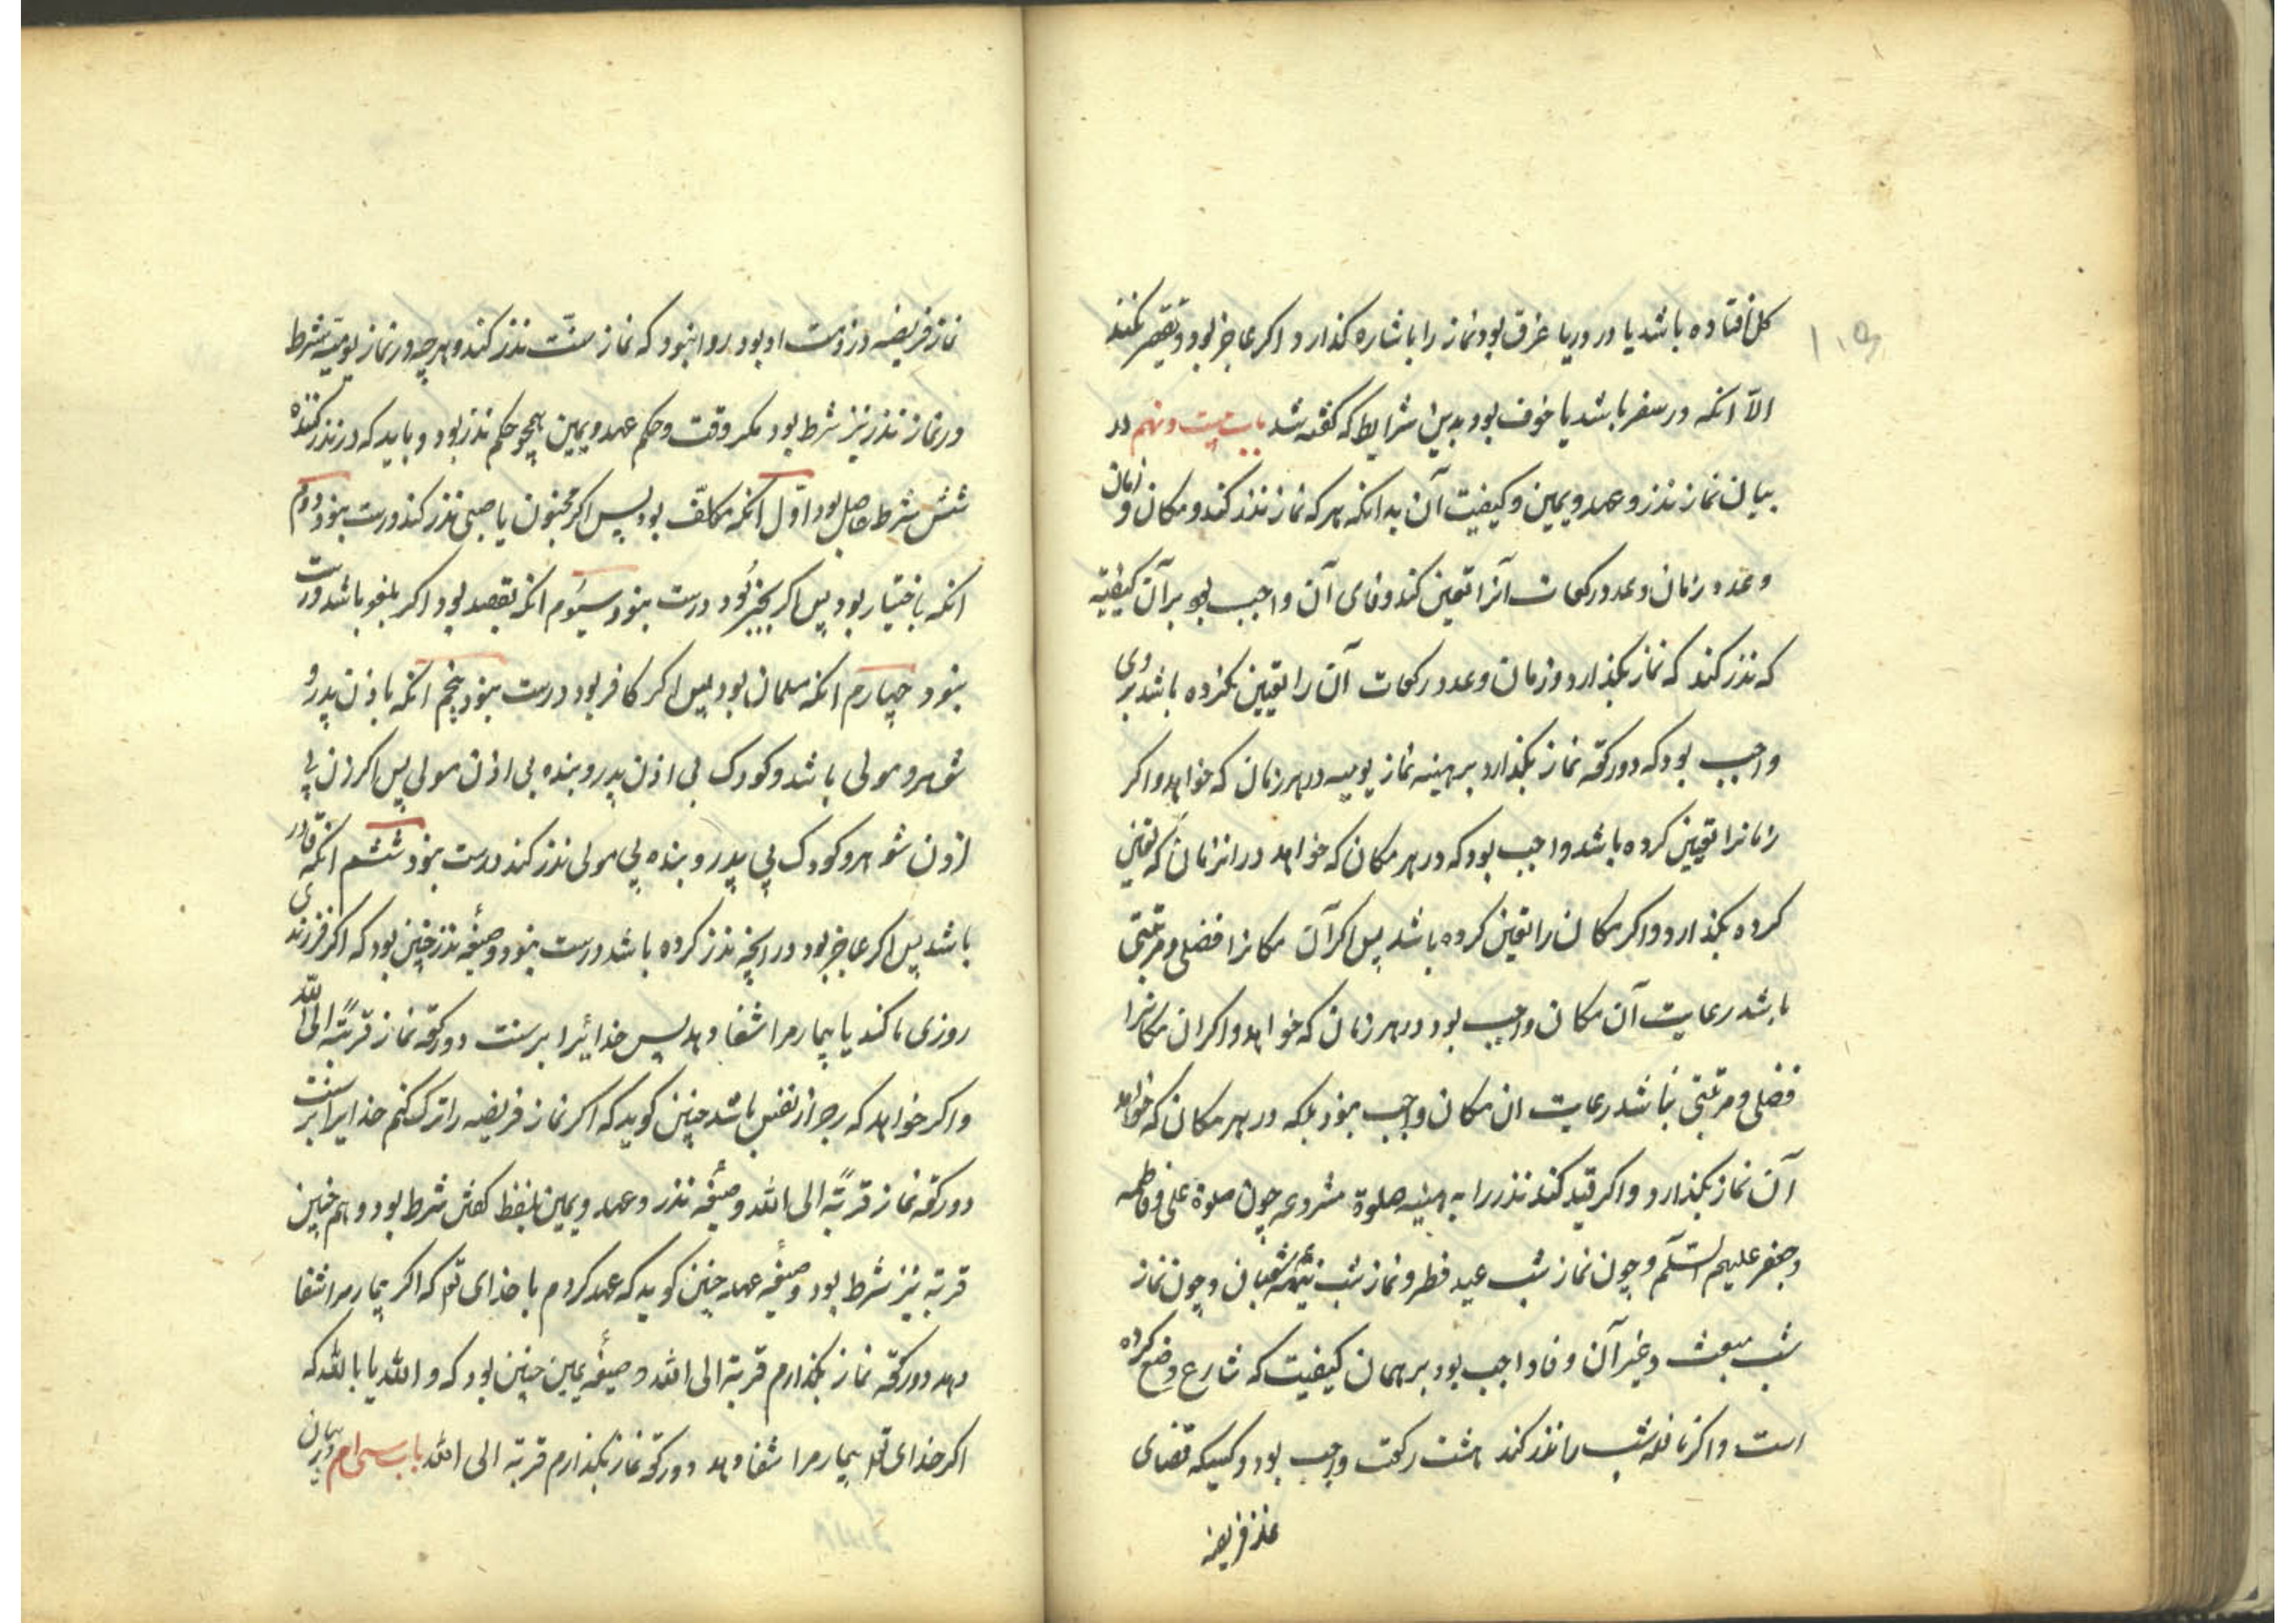 ۱۰۵
کل افتاده باشد یا در دریا غرق بود نماز را باشاره کذارد و اکر عاجز بود و تقصیر نکند
الا انکه در سفر باشد یا خوف بود بدین شرایط که کفته شد باب بیست و نهم در
بیان نماز نذر و عهد و یمین و کیفیت آن بدانکه هرکه نماز نذر کند و مکان و زمان
و عدد زمان و عدد رکعات آنرا تعین کند وفای آن واجب بود بر آن کیفیة
که نذر کند که نماز بکذارد و زمان و عدد رکعات آن را تعیین نکرده باشد بر وی
واجب بود که دو رکعة نماز بکذارد بر هینه نماز یومیه در هر زمان که خواهد و اکر
زمانرا تعیین کرده باشد واجب بود که در هر مکان که خواهد در انزمان که تعین
کرده بکذارد و اکر مکان را تعین کرده باشد پس اکر آن مکانرا فضلی و مرتبتی
باشد رعایت آن مکان واجب بود در هر زمان که خواهد و اکر ان مکانرا
فضلی و مرتبتی نباشد رعایت ان مکان واجب نبود بلکه در هر مکان که خواهد
آن نماز بکذارد و اکر قید کند نذر را به هینه صلوة مشروعه چون صلوة علی و فاطمه
و جعفر علیهم السّلم و چون نماز شب عید فطر و نماز شب نیمهٔ شعبان و چون نماز
شب مبعث و غیر آن وفا واجب بود بر همان کیفیت که شارع وضع کرده
است و اکر نافله شب را نذر کند هشت رکعت واجب بود و کسیکه قضای
نماز فریضه
نماز فریضه در ذمت او بود روا نبود که نماز سنّت نذر کند و هر چه در نماز یومیّه شرط
در نماز نذر نیز شرط بود مکر وقت و حکم عهد و یمین همچو حکم نذر بود و باید که در نذر کننده
شش شرط حاصل بود اوّل انکه مکلّف بود پس اکر مجنون یا صبی نذر کند درست نبود دوم
انکه باختیار بود پس اکر بجبر بود درست نبود سیوم انکه بقصد بود اکر بلغو باشد درست
نبود چهارم انکه مسلمان بود پس اکر کافر بود درست نبود پنجم انکه باذن پدر و
شوهر و مولی باشد و کودک بی اذن پدر و بنده بی اذن مولی پس اکر زن بی
اذن شوهر و کودک بی پدر و بنده بی مولی نذر کند درست نبود ششم انکه قادر
باشد پس اکر عاجز بود در انچه نذر کرده باشد درست نبود و صیغهٔ نذر چنین بود که اکر فرزندی
روزی ما کند یا بیمار مرا شفا دهد پس خدائیرا بر منست دو رکعة نماز قربةً الی الله
و اکر خواهد که زجر از نفس باشد چنین کوید که اکر نماز فریضه را ترک کنم خدایرا بر منست
دو رکعة نماز قربةً الی الله و صیغهٔ نذر و عهد و یمین بلفظ کفتن شرط بود و هم چنین
قربة نیز شرط بود و صیغهٔ عهد چنین کوید که عهد کردم با خدای تعا که اکر بیمار مرا شفا
دهد دو رکعة نماز بکذارم قربة الی الله و صیغهٔ یمین چنین بود که و الله یا بالله که
اکر خدای تعا بیمار مرا شفا دهد دو رکعة نماز بکذارم قربة الی الله باب سی‌ام در بیان